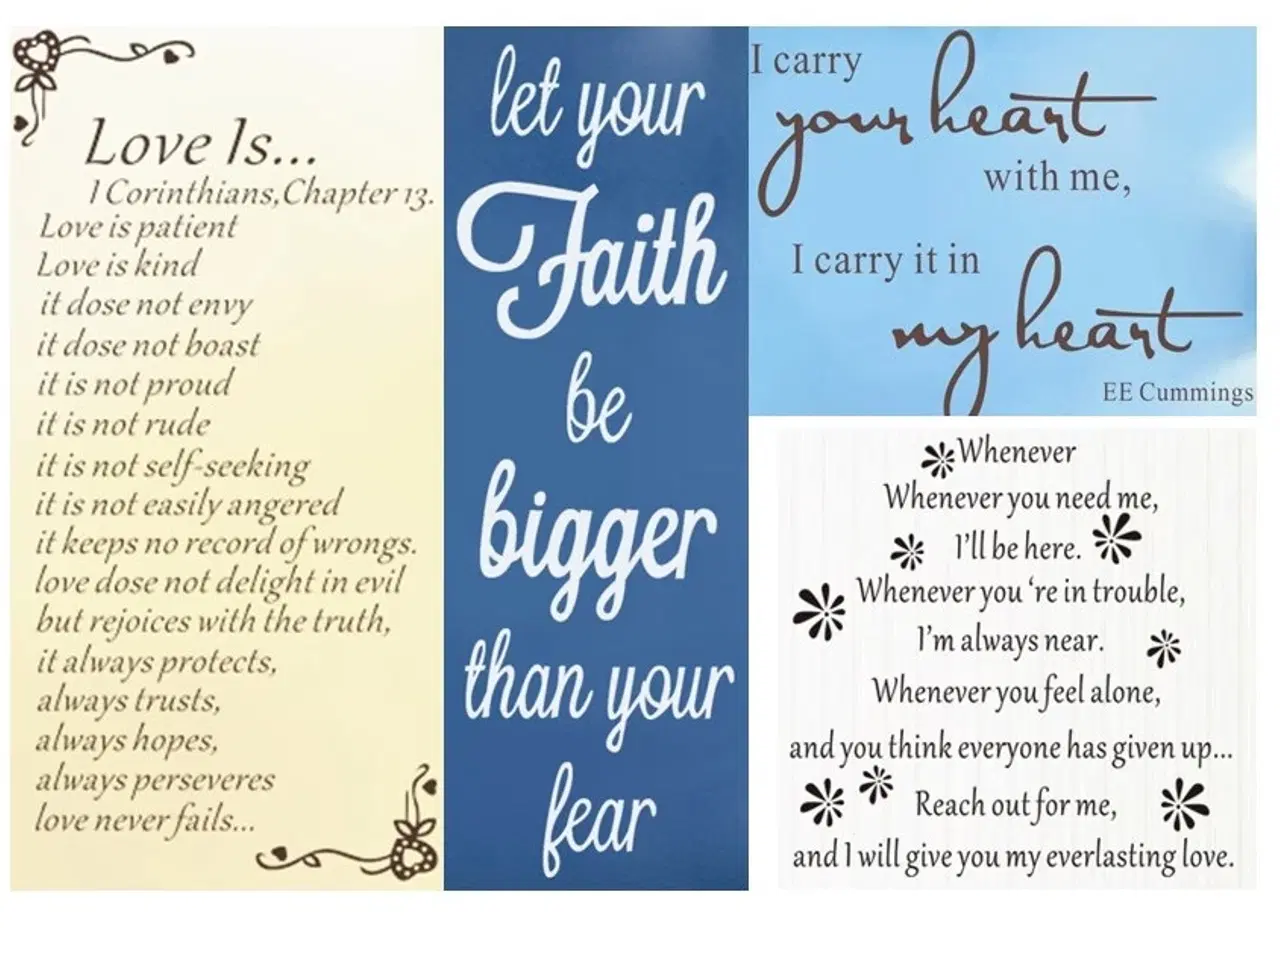 Love Is...
1 Corinthians,Chapter 13.
Love is patient
Love is kind
it dose not envy
it dose not boast
it is not proud
it is not rude
it is not self-seeking
it is not easily angered
it keeps no record of wrongs.
love dose not delight in evil
but rejoices with the truth,
it always protects,
always trusts,
always hopes,
always perseveres
love never fails...
let your
Faith
be
bigger
than your
fear
I carry
your heart
with me,
I carry it in
my heart
EE Cummings
Whenever
Whenever you need me,
I'll be here.
Whenever you 're in trouble,
I'm always near.
Whenever you feel alone,
and you think everyone has given up...
Reach out for me,
and I will give you my everlasting love.